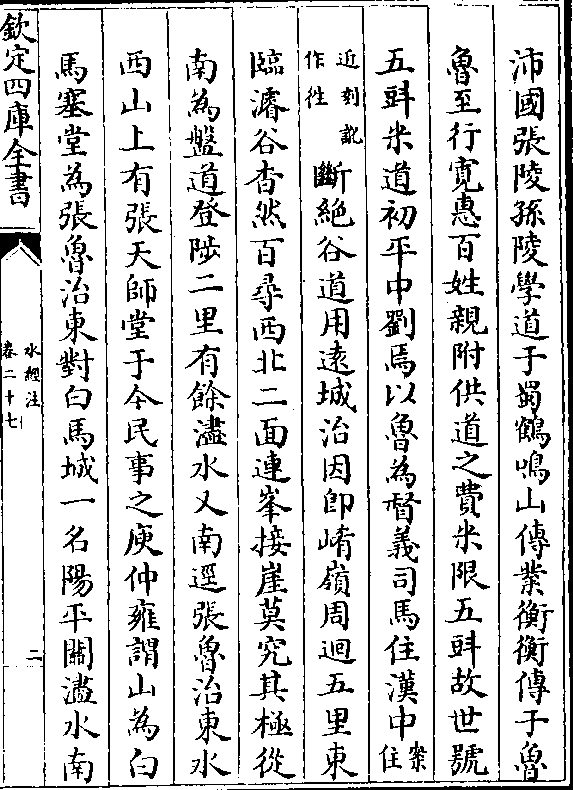 沛國張陵孫陵學道于蜀鶴鳴山傳業衡衡傳于魯
魯至行寛惠百姓親附供道之費米限五㪷故世號
五㪷米道初平中劉焉以魯為督義司馬住漢中案住
近刻訛作徃斷絶谷道用逺城治因即崤嶺周迴五里東
臨濬谷杳然百尋西北二面連峯接崖莫究其極從
南為盤道登陟二里有餘濜水又南逕張魯治東水
西山上有張天師堂于今民事之庾仲雍謂山為白
馬塞堂為張魯治東對白馬城一名陽平關濜水南
欽定四庫全書
水經注
卷二十七
二